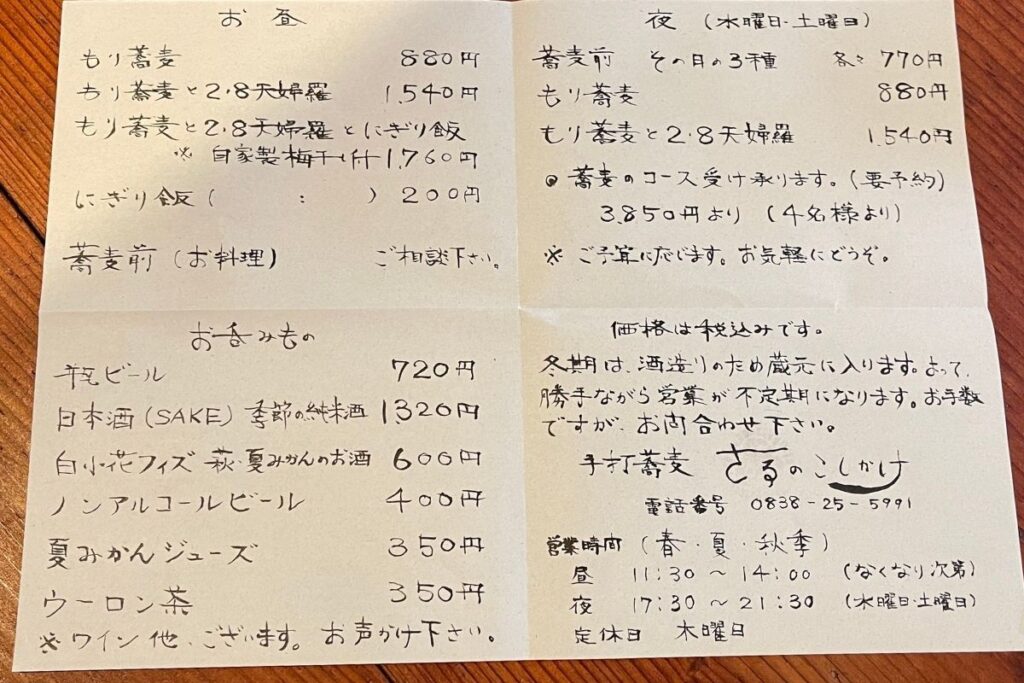 お昼
もり蕎麦 880円
もり蕎麦と2・8天婦羅 1,540円
もり蕎麦と2・8天婦羅とにぎり飯
※ 自家製梅干し付 1,760円
にぎり飯 ( : ) 200円
蕎麦前 (お料理) ご相談下さい。
夜 (水曜日・土曜日)
蕎麦前 その日の3種 各々 770円
もり蕎麦 880円
もり蕎麦と2・8天婦羅 1,540円
◎ 蕎麦のコース受け承ります。(要予約)
3,850円より (4名様より)
※ ご予算に応じます。お気軽にどうぞ。
お呑みもの
生ビール 720円
日本酒 (SAKE) 季節の純米酒 1,320円
白小花フィズ 萩・夏みかんのお酒 600円
ノンアルコールビール 400円
夏みかんジューズ 350円
ウーロン茶 350円
※ワイン他、ございます。お声かけ下さい。
価格は税込みです。
冬期は、酒造りのため蔵元に入ります。よって、
勝手ながら営業が不定期になります。お手数
ですが、お問合わせ下さい。
手打蕎麦 さるのこしかけ
電話番号 0838-25-5991
営業時間 (春・夏・秋季)
昼 11:30 ～ 14:00 (なくなり次第)
夜 17:30 ～ 21:30 (水曜日・土曜日)
定休日 木曜日